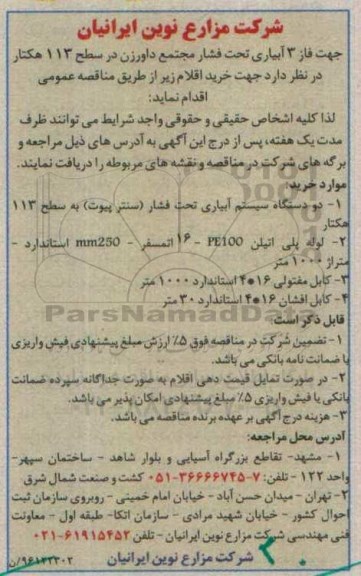 شرکت مزارع نوین ایرانیان
جهت فاز ۳ آبیاری تحت فشار مجتمع داورزن در سطح ۱۱۳ هکتار
در نظر دارد جهت خرید اقلام زیر از طریق مناقصه عمومی
اقدام نماید:
لذا کلیه اشخاص حقیقی و حقوقی واجد شرایط می توانند ظرف
مدت یک هفته، پس از درج این آگهی به آدرس های ذیل مراجعه و
برگه های شرکت در مناقصه و نقشه های مربوطه را دریافت نمایند.
موارد خرید:
۱- دو دستگاه سیستم آبیاری تحت فشار (سنتر پیوت) به سطح ۱۱۳
هکتار
۲- لوله پلی اتیلن PE100 - ۱۶ اتمسفر - mm250 استاندارد -
متراژ ۱۰۰۰ متر
۳- کابل مفتولی ۱۶*۴ استاندارد ۱۰۰۰ متر
۴- کابل افشان ۱۶*۴ استاندارد ۳۰ متر
قابل ذکر است:
۱- تضمین شرکت در مناقصه فوق ۵٪ ارزش مبلغ پیشنهادی فیش واریزی
یا ضمانت نامه بانکی می باشد.
۲- در صورت تمایل قیمت دهی اقلام به صورت جداگانه سپرده ضمانت
بانکی یا فیش واریزی ۵٪ مبلغ پیشنهادی امکان پذیر می باشد.
۳- هزینه درج آگهی بر عهده برنده مناقصه می باشد.
آدرس محل مراجعه:
۱- مشهد- تقاطع بزرگراه آسیایی و بلوار شاهد - ساختمان سپهر-
واحد ۱۲۲ - تلفن: ۷-۳۶۶۶۶۷۴۵-۰۵۱ کشت و صنعت شمال شرق
۲- تهران - میدان حسن آباد - خیابان امام خمینی - روبروی سازمان ثبت
احوال کشور - خیابان شهید مرادی - سازمان اتکا- طبقه اول - معاونت
فنی مهندسی شرکت مزارع نوین ایرانیان - تلفن ۶۱۹۱۵۴۵۲-۰۲۱
شرکت مزارع نوین ایرانیان
۹۶۱۲۳۳۰۲/ن
ParsNamadData